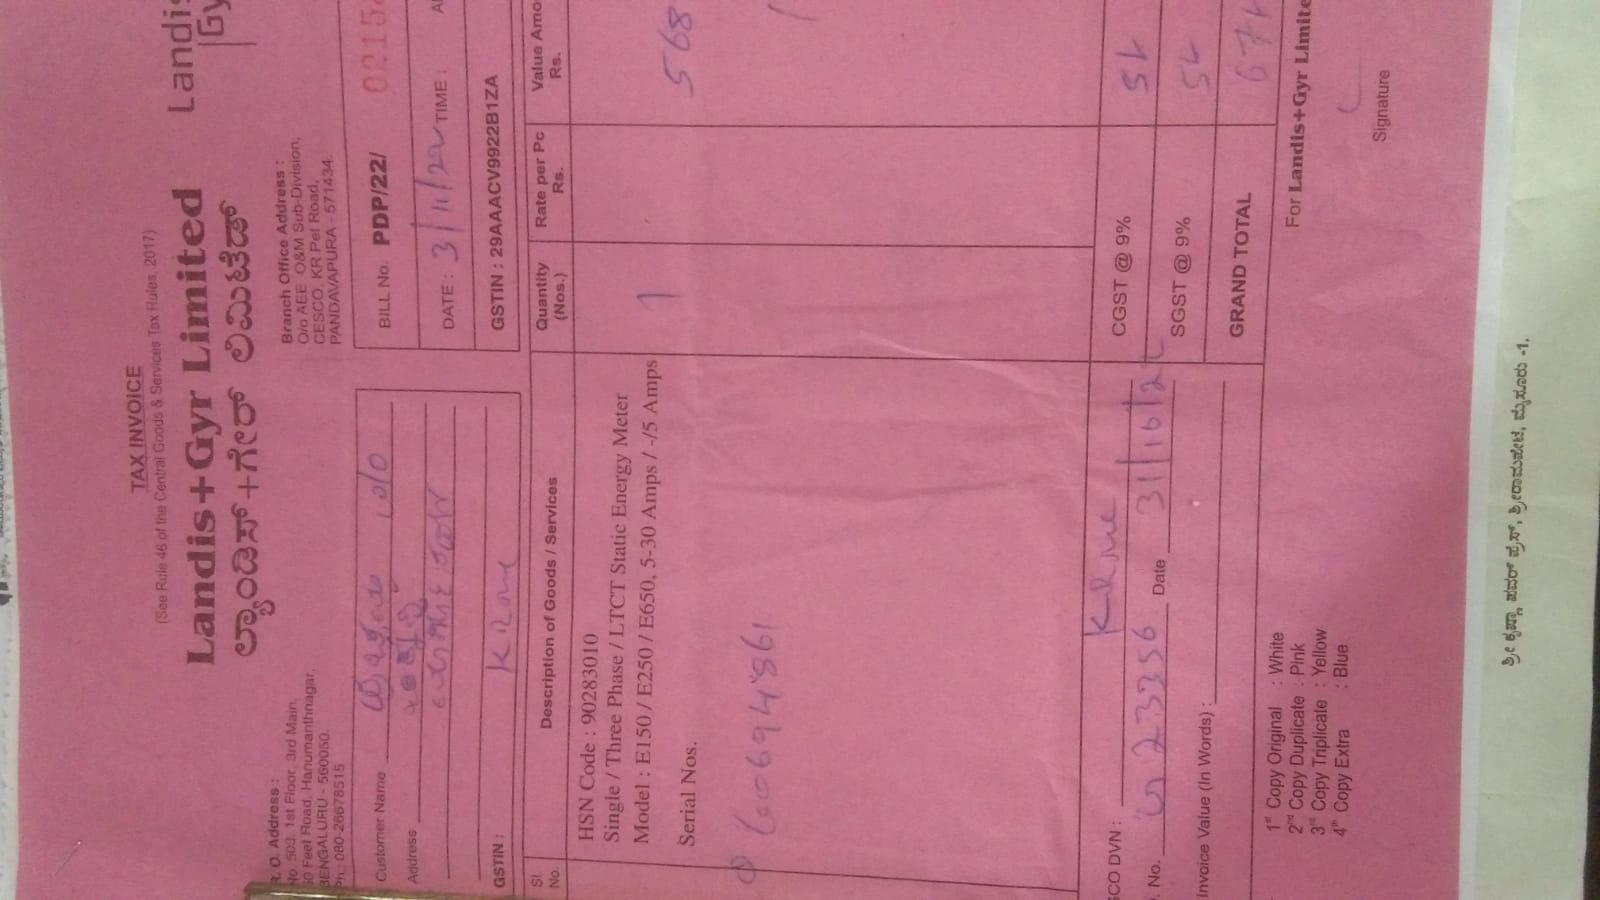 TAX INVOICE
(See Rule 46 of the Central Goods & Services Tax Rules, 2017)
Landis+Gyr Limited
ಲ್ಯಾಂಡಿಸ್+ಗೇರ್ ಲಿಮಿಟೆಡ್
Landis
Gy
R. O. Address :
No 503, 1st Floor, 3rd Main,
50 Feet Road, Hanumanthnagar,
BENGALURU - 560050.
Ph.: 080-26678515
Branch Office Address :
O/o AEE O&M Sub-Division,
CESCO, KR Pet Road,
PANDAVAPURA - 571434
Customer Name
Address
GSTIN :
BILL No. PDP/22/ 0215
DATE : 3/11/22 TIME :
GSTIN : 29AAACV9922B1ZA
Sl. No. Description of Goods / Services Quantity (Nos.) Rate per Pc Rs. Value Amo Rs.
HSN Code : 90283010
Single / Three Phase / LTCT Static Energy Meter 1 568
Model : E150 / E250 / E650, 5-30 Amps / -/5 Amps
Serial Nos.
SCO DVN :
No. 23356 Date 31/10/22
Invoice Value (In Words) :
CGST @ 9% 51
SGST @ 9% 51
GRAND TOTAL 671
1st Copy Original : White
2nd Copy Duplicate : Pink
3rd Copy Triplicate : Yellow
4th Copy Extra : Blue
For Landis+Gyr Limite
Signature
ಶ್ರೀ ಕೃಷ್ಣಾ ಪವರ್ ಪ್ರೆಸ್, ಶ್ರೀರಾಮಪೇಟೆ, ಮೈಸೂರು -1.